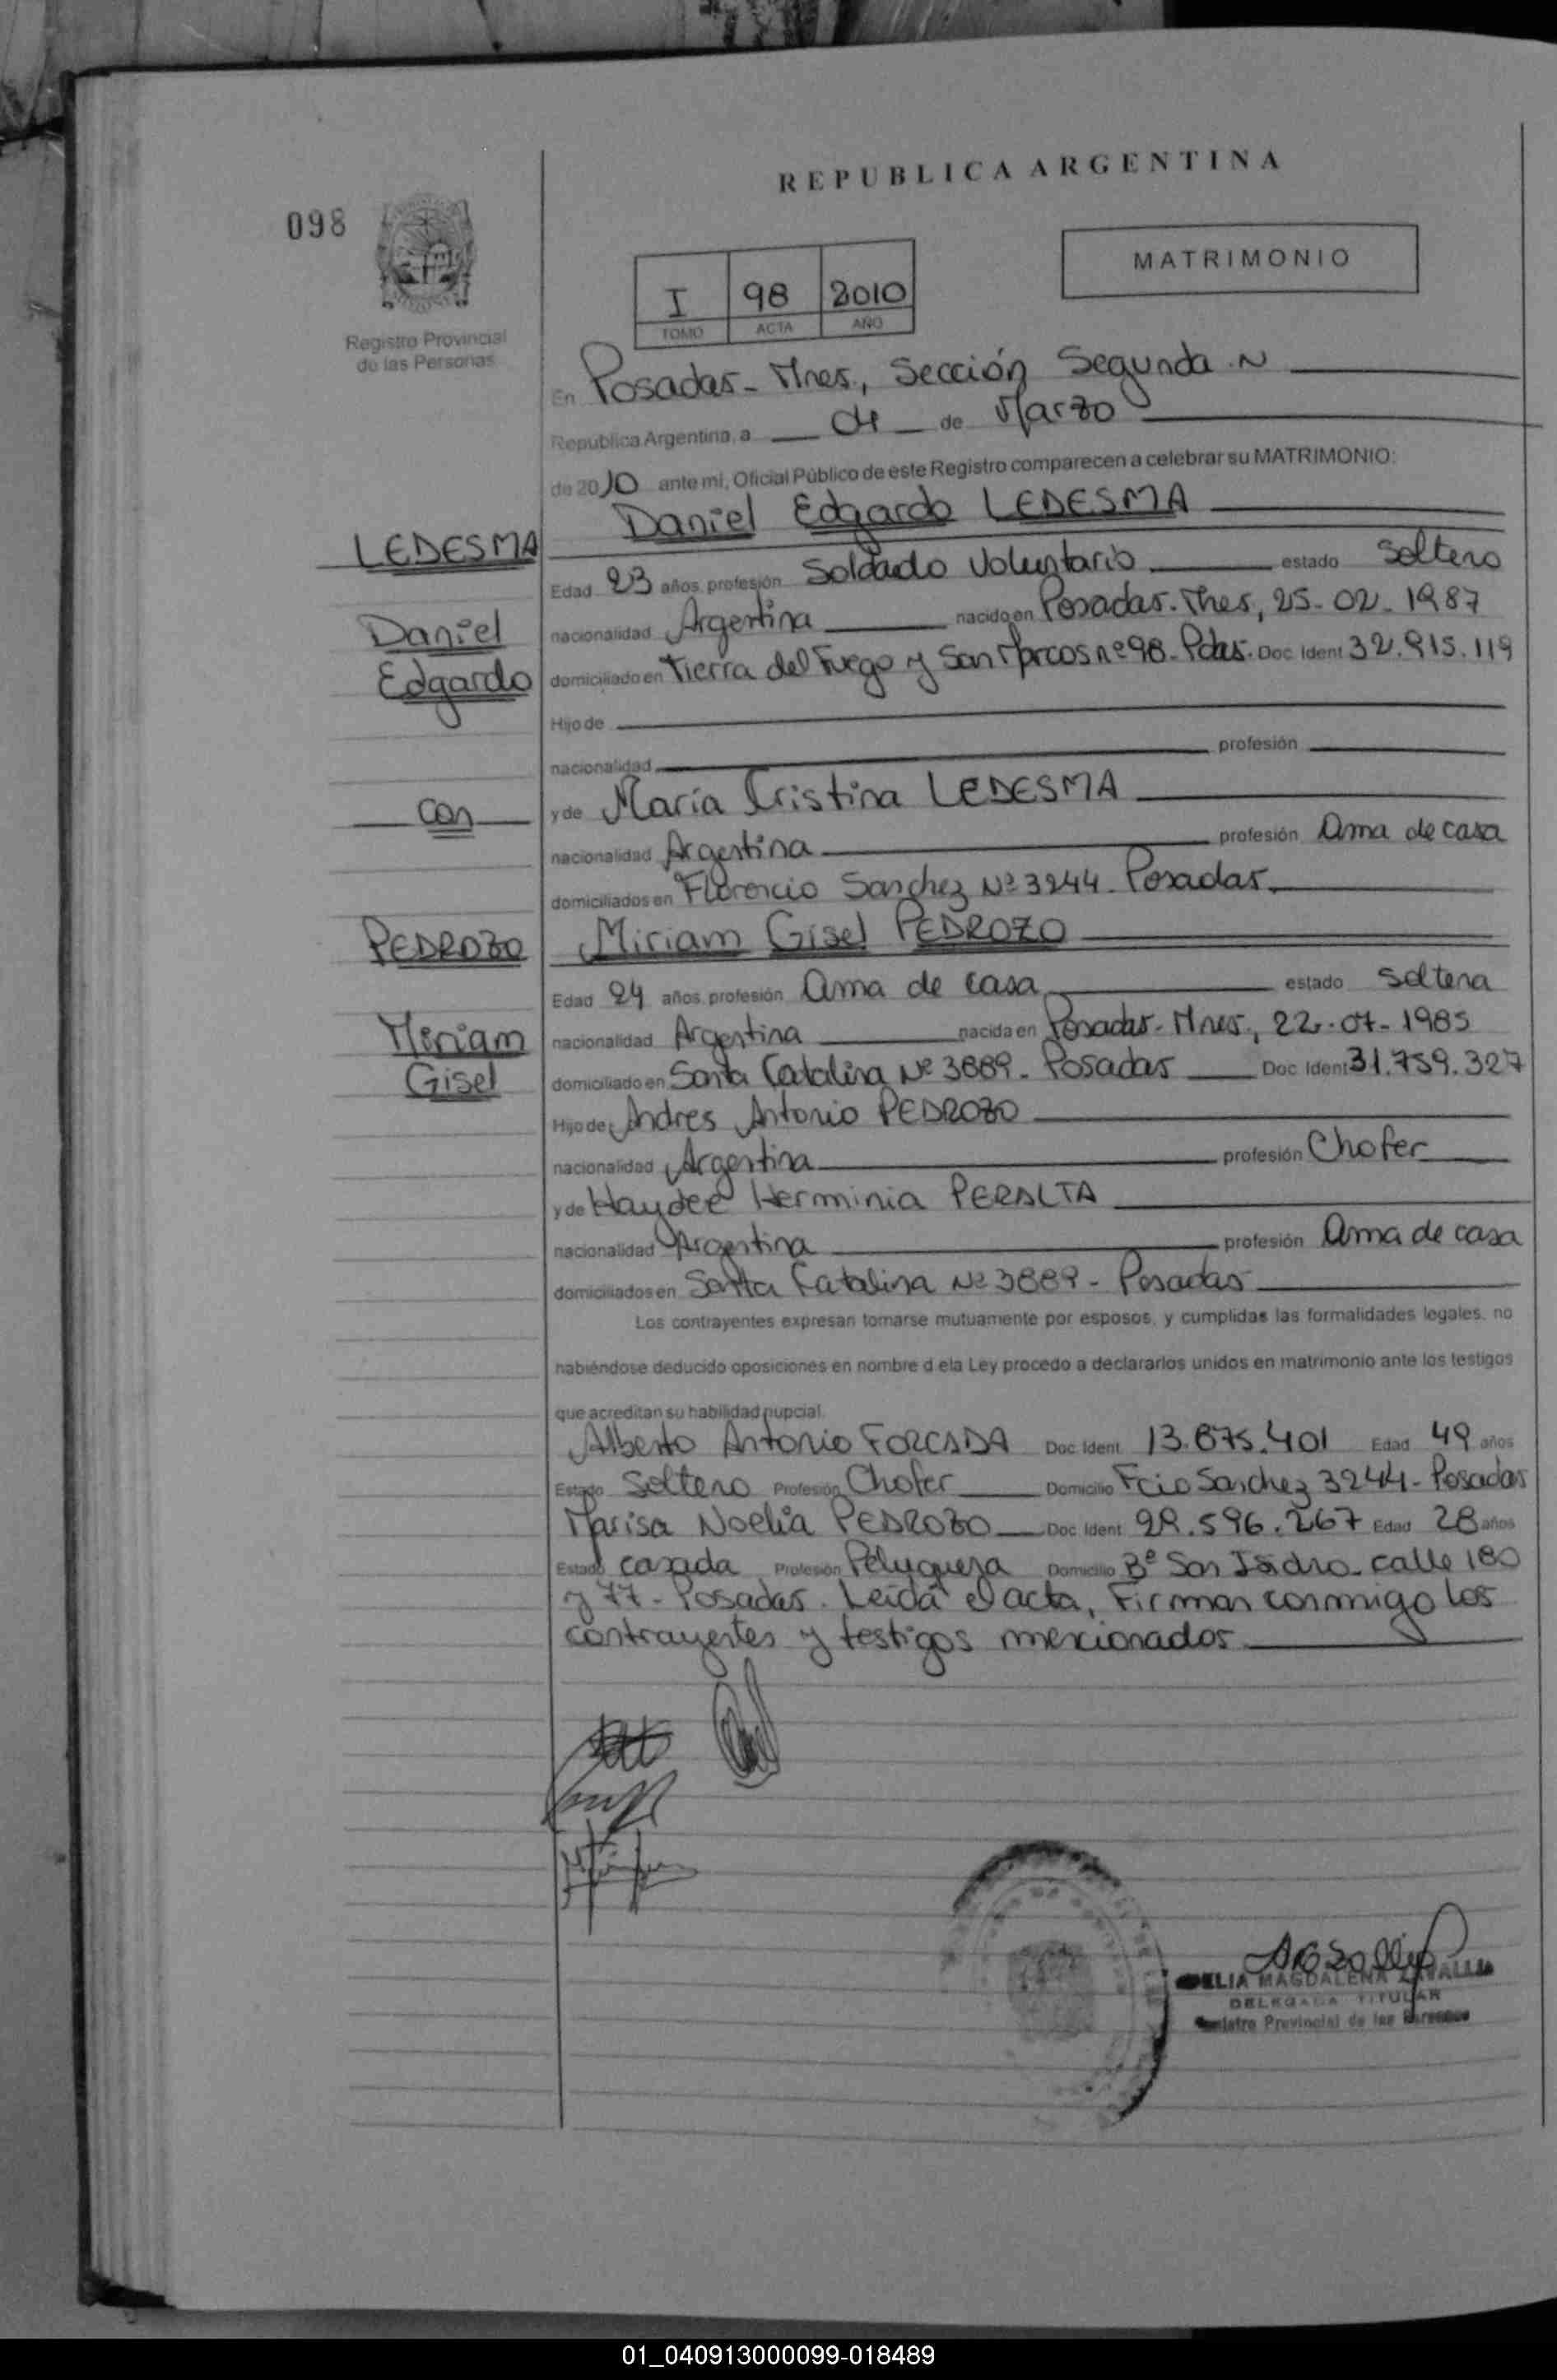 REPUBLICA ARGENTINA
098
MATRIMONIO
I 98 2010
TOMO ACTA AÑO
Registro Provincial
de las Personas
En Posadas - Mnes., Sección Segunda. N
Republica Argentina, a 04 de Marzo
de 2010 ante mi, Oficial Público de este Registro comparecen a celebrar su MATRIMONIO:
Daniel Edgardo LEDESMA
LEDESMA
Edad 23 años, profesión Soldado Voluntario estado Soltero
Daniel
nacionalidad Argentina nacido en Posadas. Mnes, 25-02-1987
Edgardo
domiciliado en Tierra del Fuego y San Marcos nº 98 - Pdas. Doc Ident 32.915.119
Hijo de
nacionalidad profesión
con
y de María Cristina LEDESMA
nacionalidad Argentina profesión Ama de casa
domiciliados en Florencio Sanchez Nº 3244 - Posadas.
PEDROZO
Miriam Gisel PEDROZO
Edad 24 años, profesión Ama de casa estado Soltera
Miriam
nacionalidad Argentina nacida en Posadas - Mnes., 22-07-1985
Gisel
domiciliado en Santa Catalina Nº 3889 - Posadas Doc Ident 31.759.327
Hijo de: Andres Antonio PEDROZO
nacionalidad Argentina profesión Chofer
y de Haydee Herminia PERALTA
nacionalidad Argentina profesión Ama de casa
domiciliados en Santa Catalina Nº 3889 - Posadas
Los contrayentes expresan tomarse mutuamente por esposos, y cumplidas las formalidades legales, no
habiéndose deducido oposiciones en nombre d ela Ley procedo a declararlos unidos en matrimonio ante los testigos
que acreditan su habilidad nupcial.
Alberto Antonio FORCADA Doc Ident. 13.675.401 Edad 49 años
Estado Soltero Profesión Chofer Domicilio Fcio Sanchez 3244 - Posadas
Marisa Noelia PEDROZO Doc Ident 29.596.267 Edad 28 años
Estado casada Profesión Peluquera Domicilio Bº San Isidro - calle 180
y 77 - Posadas. Leída el acta, Firman conmigo los
contrayentes y testigos mencionados
DELIA MAGDALENA ZAVALLIA
DELEGADA TITULAR
Registro Provincial de las Personas
01_040913000099-018489